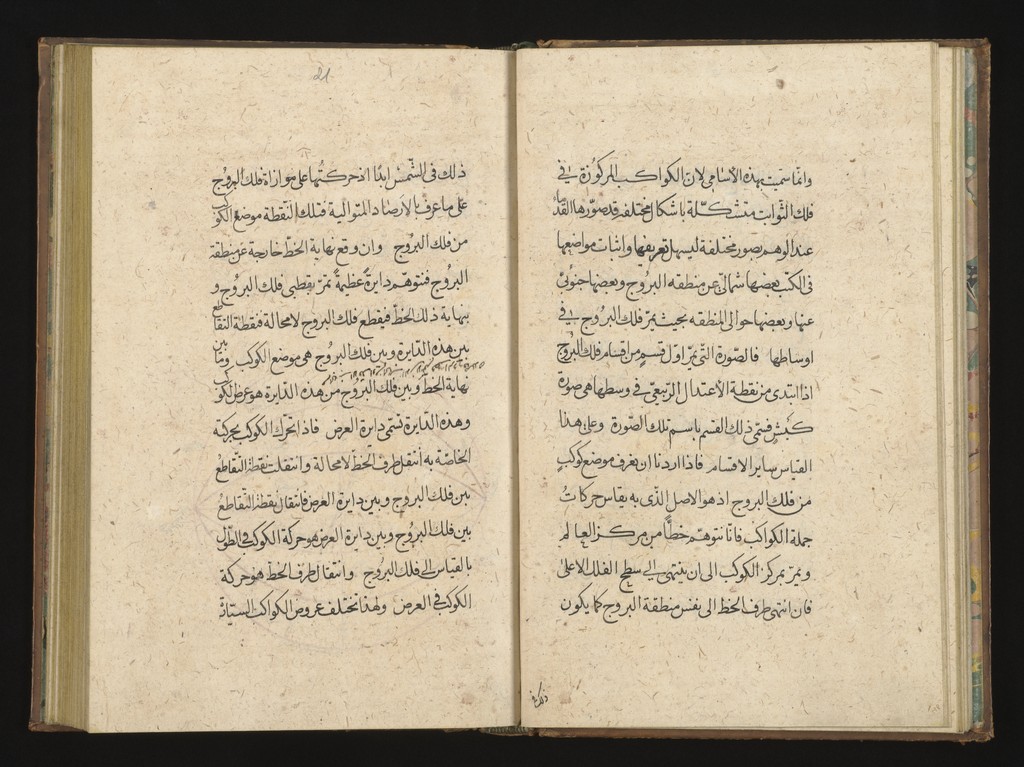 وانما سميت بهذه الأسامي لان الكواكب المركوزة في
فلك الثوابت متشكلة باشكال مختلفة قد صورها القدما
عند الوهم بصور مختلفة ليسهل تعريفها واثبات مواضعها
في الكتب بعضها شمالي عن منطقه البروج وبعضها جنوبي
عنها وبعضها حوالى المنطقه بحيث يمر فلك البروج في
اوساطها فالصورة التي يمر اول قسم من اقسام فلك البروج
اذا ابتدى من نقطة الاعتدال الربيعي في وسطها هي صورة
كبش فسمى ذلك القسم باسم تلك الصورة وعلى هذا
القياس ساير الاقسام فاذا اردنا ان يعرف موضع كوكب
من فلك البروج اذ هو الاصل الذى به يقاس حركات
جملة الكواكب فانا نتوهم خطا من مركز العالم
ويمر بمركز الكوكب الى ان ينتهى الى سطح الفلك الاعلى
فان انتهى طرف الخط الى نفس منطقة البروج كما يكون
ذلك في
21
ذلك فى الشمس ابدا اذ حركتها على موازاة فلك البروج
على ما عرف بالارصاد المتوالية فتلك النقطة موضع الكوكب
من فلك البروج وان وقع نهاية الخط خارجة عن منطقة
البروج فنتوهم دايرة عظيمة تمر بقطبى فلك البروج و
بنهاية ذلك الخط فيقطع فلك البروج لا محالة فنقطة التقاطع
بين هذه الدايرة وبين فلك البروج هي موضع الكوكب وما بين
نهاية الخط وبين فلك البروج من هذه الدايرة هو عرض الكوكب
وهذه الدايرة تسمى دايرة العرض فاذا تحرك الكوكب بحركته
الخاصة به انتقل طرف الخط لا محالة وانتقلت نقطة التقاطع
بين فلك البروج وبين دايرة العرض فانتقال نقطة التقاطع
بين فلك البروج وبين دايرة العرض هو حركة الكوكب في الطول
بالقياس الى فلك البروج وانتقال طرف الخط هو حركة
الكوكب في العرض ولهذا تختلف عروض الكواكب السيارة